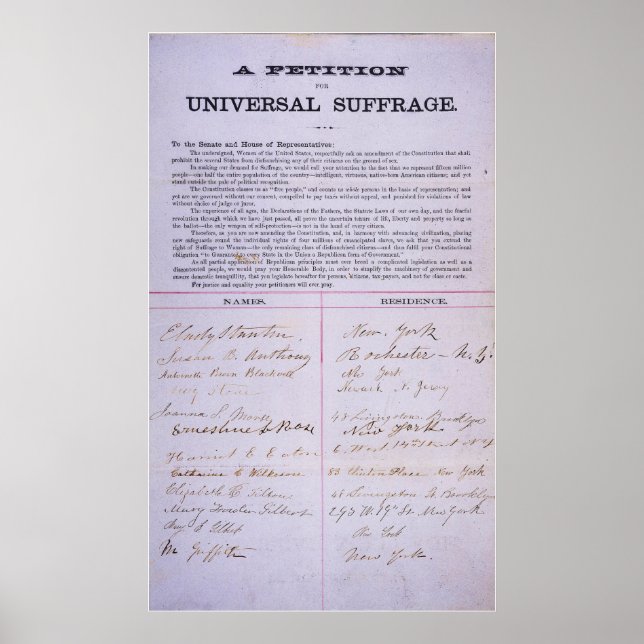 A PETITION
FOR
UNIVERSAL SUFFRAGE.
To the Senate and House of Representatives:
The undersigned, Women of the United States, respectfully ask an amendment of the Constitution that shall
prohibit the several States from disfranchising any of their citizens on the ground of sex.
In making our demand for Suffrage, we would call your attention to the fact that we represent fifteen million
people—one half the entire population of the country—intelligent, virtuous, native-born American citizens; and yet
stand outside the pale of political recognition.
The Constitution classes us as "free people," and counts us whole persons in the basis of representation; and
yet are we governed without our consent, compelled to pay taxes without appeal, and punished for violations of law
without choice of judge or juror.
The experience of all ages, the Declarations of the Fathers, the Statute Laws of our own day, and the fearful
revolution through which we have just passed, all prove the uncertain tenure of life, liberty and property so long as
the ballot—the only weapon of self-protection—is not in the hand of every citizen.
Therefore, as you are now amending the Constitution, and, in harmony with advancing civilization, placing
new safeguards round the individual rights of four millions of emancipated slaves, we ask that you extend the
right of Suffrage to Woman—the only remaining class of disfranchised citizens—and thus fulfil your Constitutional
obligation "to Guarantee to every State in the Union a Republican form of Government."
As all partial application of Republican principles must ever breed a complicated legislation as well as a
discontented people, we would pray your Honorable Body, in order to simplify the machinery of government and
ensure domestic tranquility, that you legislate hereafter for persons, citizens, tax-payers, and not for class or caste.
For justice and equality your petitioners will ever pray.
NAMES. RESIDENCE.
E Cady Stanton, New York
Susan B. Anthony Rochester - N.Y.
Antoinette Brown Blackwell New York
Lucy Stone Newark N. Jersey
Joanna S. Morse 48 Livingston Brooklyn
Ernestine L Rose New York
Harriet E Eaton 6 West 14th Street N.Y
Catharine C Wilkeson 83 Clinton Place New York
Elizabeth R Tilton 48 Livingston St. Brooklyn
Mary Fowler Gilbert 293 W. 19th St New York
New York
M Griffith New York.